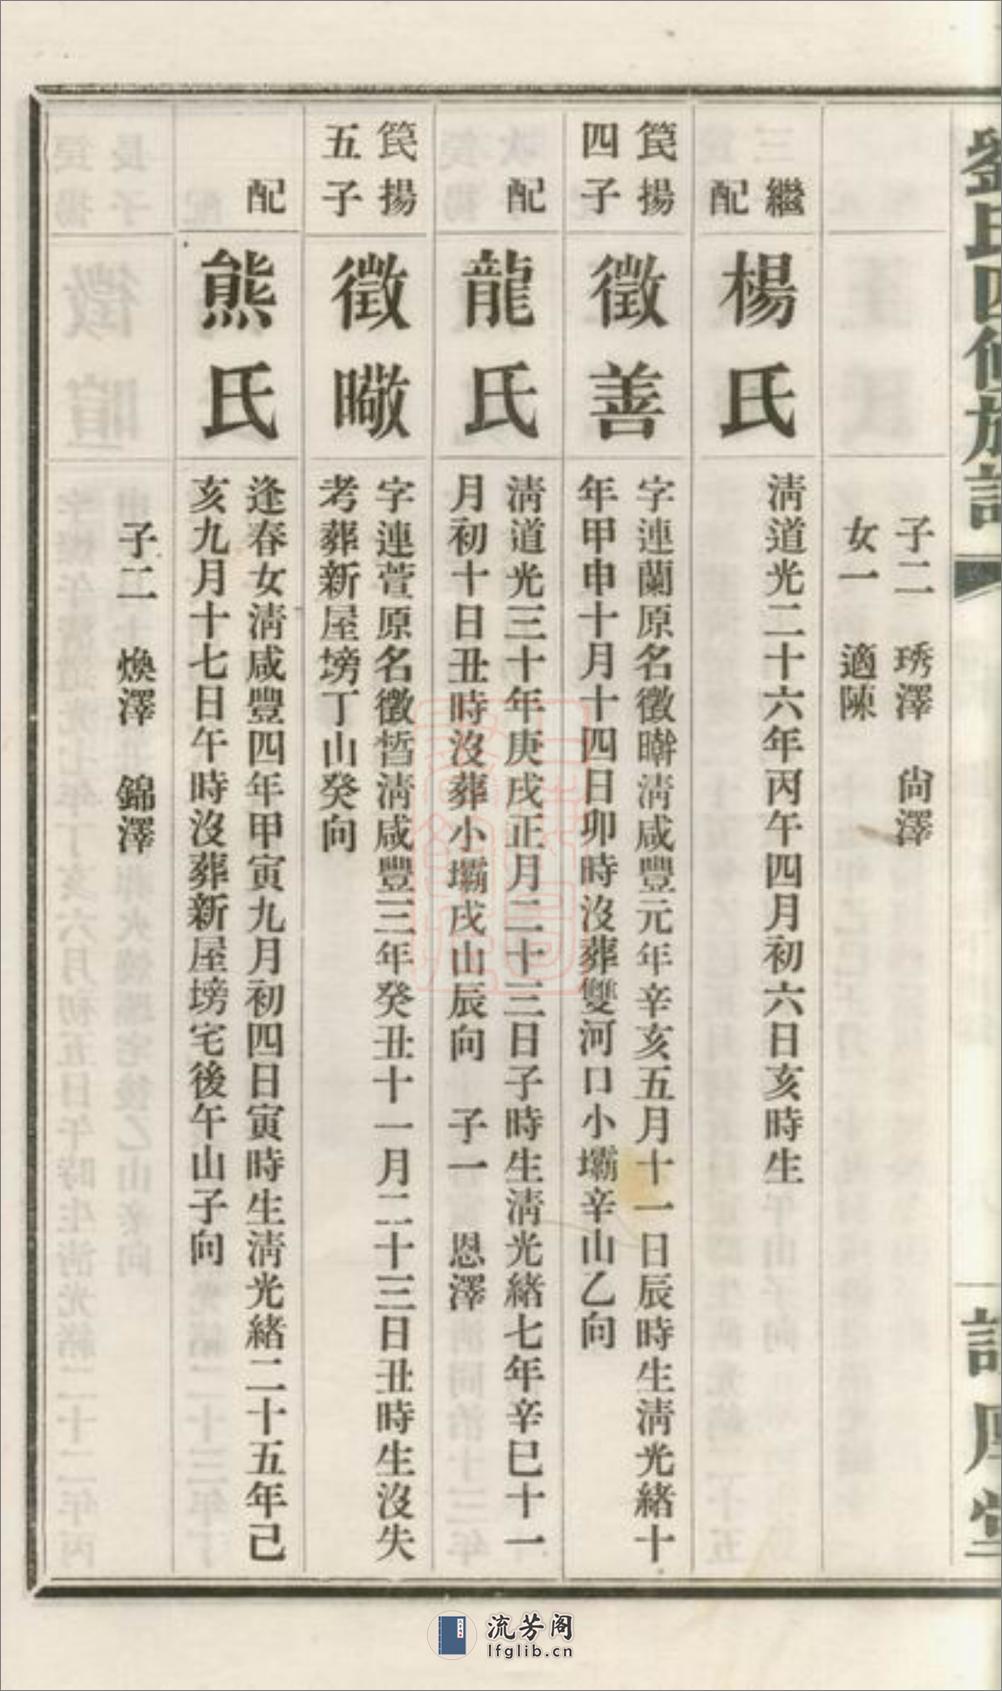 劉氏四修族譜
子二　琇澤　尙澤
女一　適陳
繼配
楊氏
淸道光二十六年丙午四月初六日亥時生
筤揚四子
徵善
字連蘭原名徵暐淸咸豐元年辛亥五月十一日辰時生淸光緒十
年甲申十月十四日卯時沒葬雙河口小壩辛山乙向
配
龍氏
淸道光三十年庚戌正月二十三日子時生淸光緒七年辛巳十一
月初十日丑時沒葬小壩戌山辰向　子一　恩澤
筤揚五子
徵暾
字連萱原名徵晳淸咸豐三年癸丑十一月二十三日丑時生沒失
考葬新屋塝丁山癸向
配
熊氏
逢春女淸咸豐四年甲寅九月初四日寅時生淸光緒二十五年己
亥九月十七日午時沒葬新屋塝宅後午山子向
子二　煥澤　錦澤
流芳阁
lfglib.cn